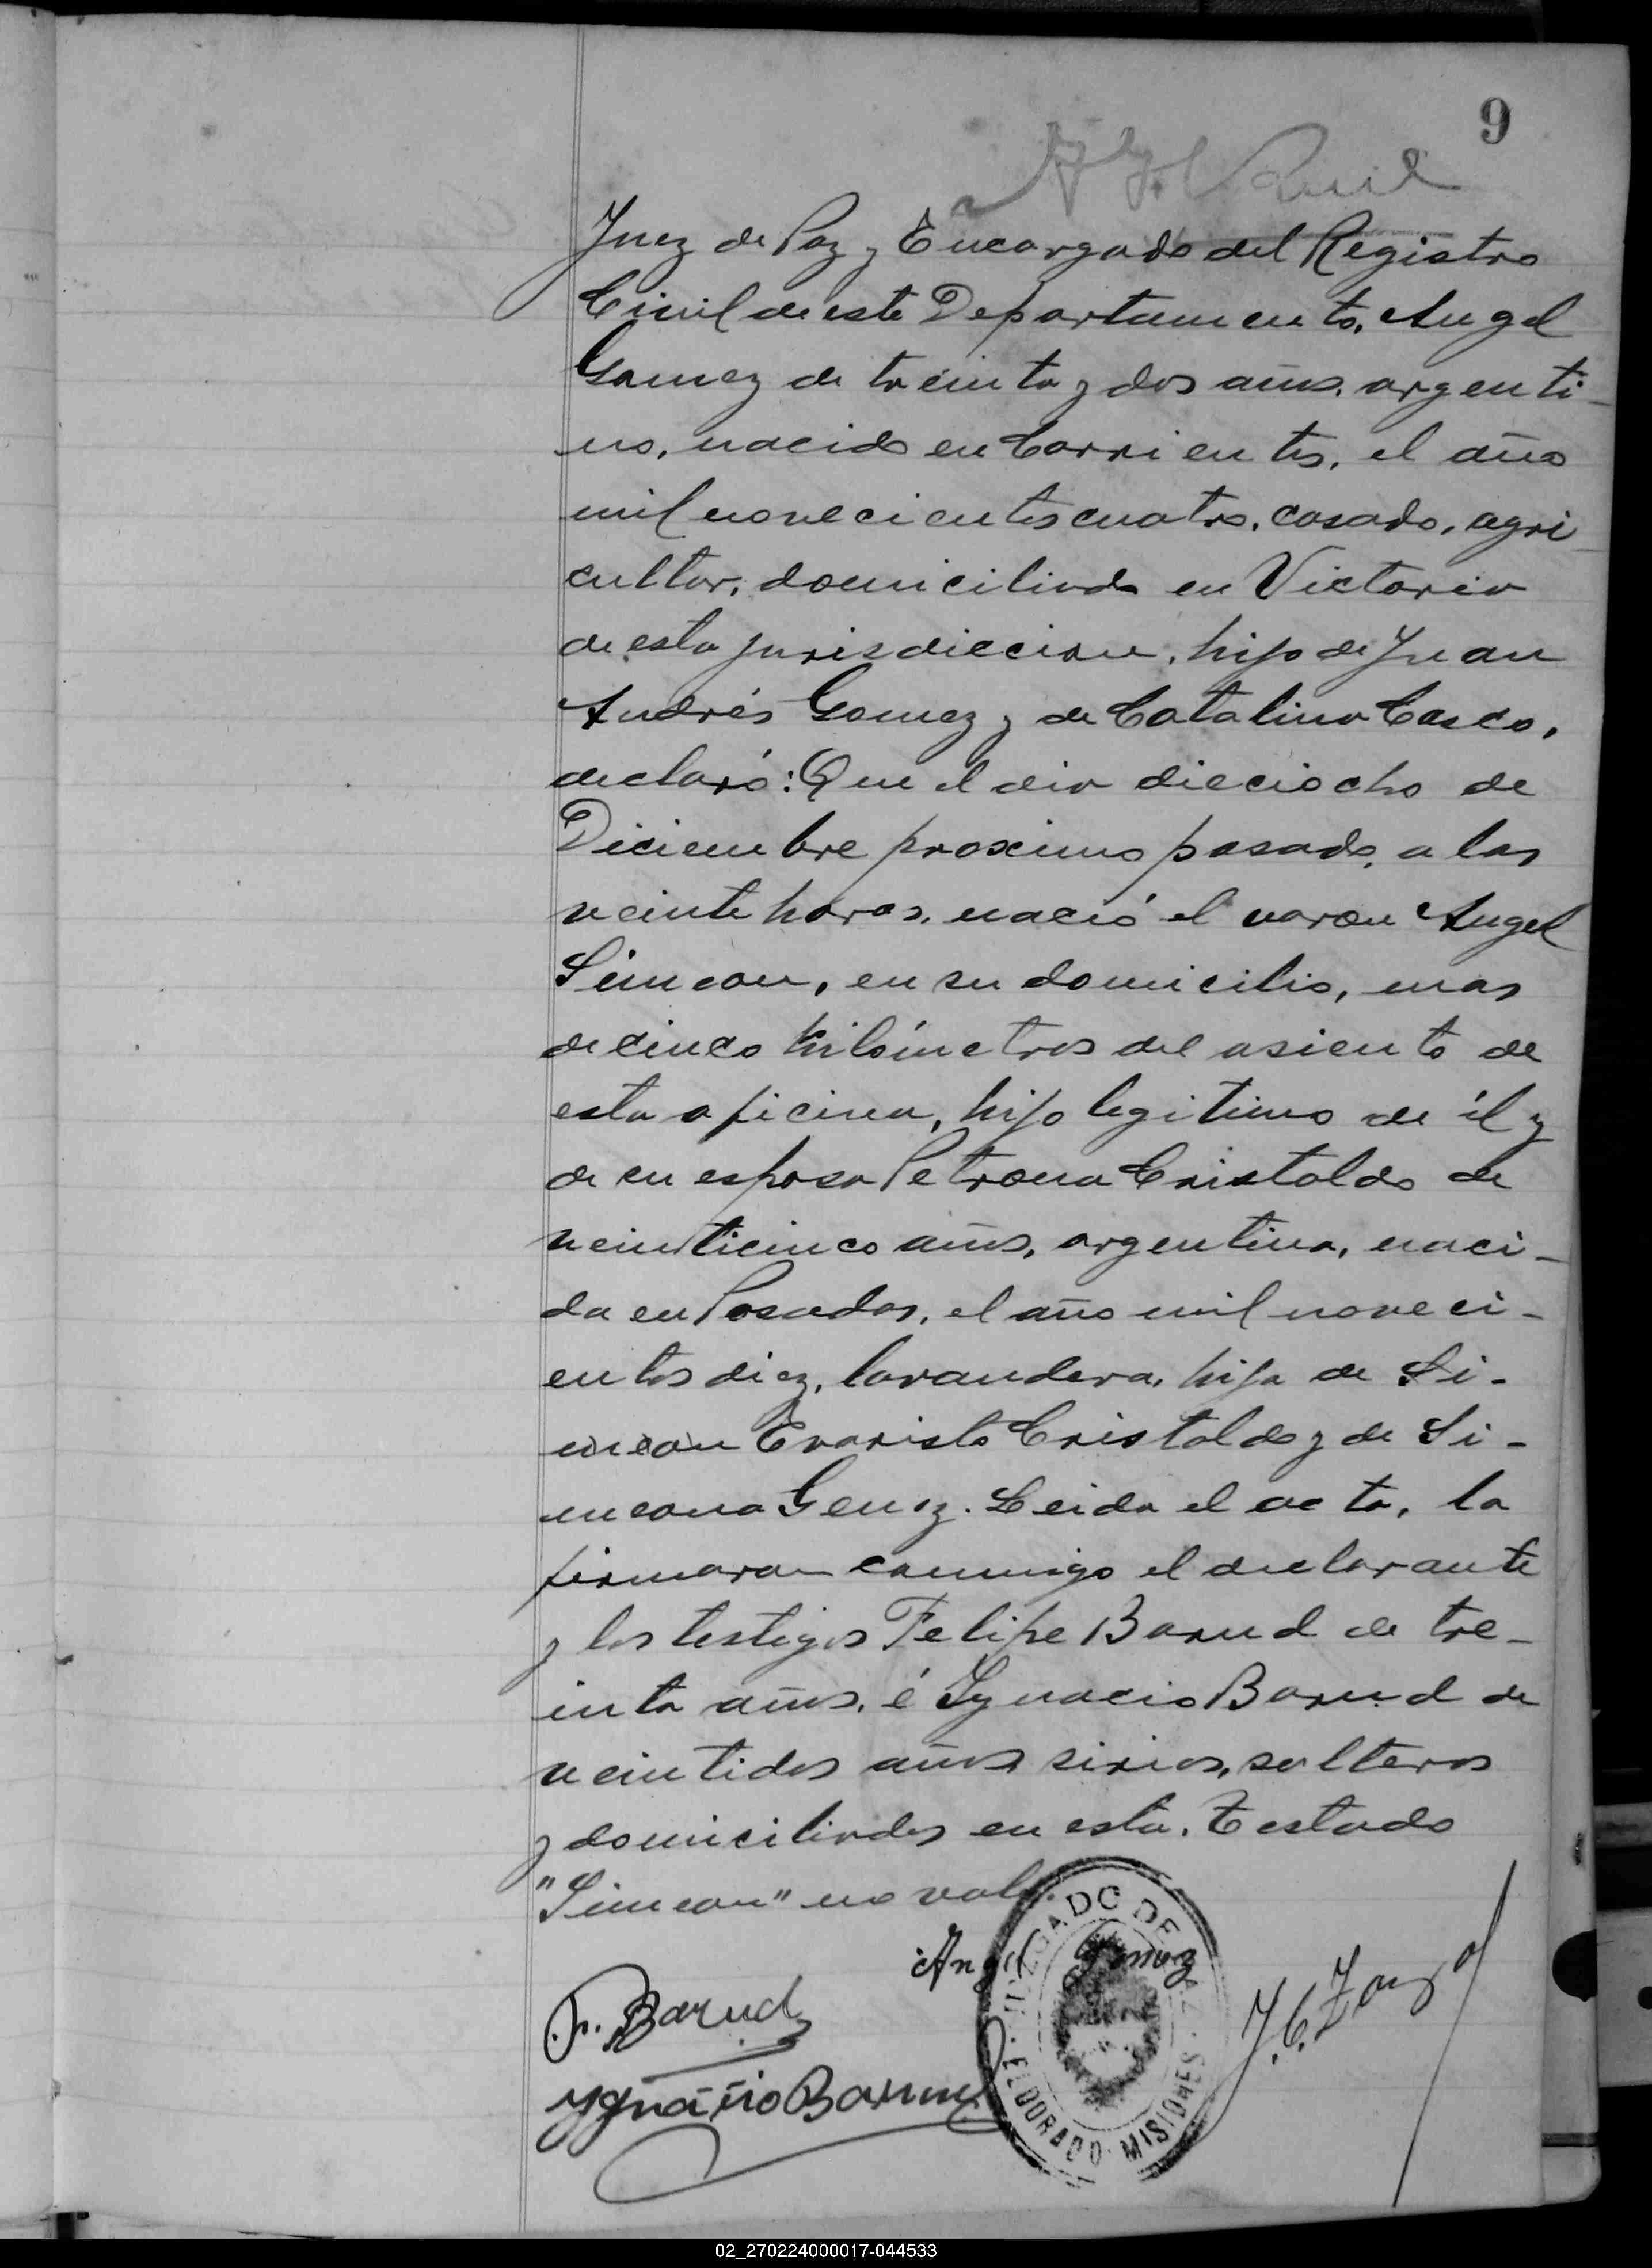 9
Juez de Paz y Encargado del Registro
Civil de este Departamento, Angel
Gomez de treinta y dos años, argenti-
no, nacido en Corrientes, el año
mil novecientos cuatro, casado, agri-
cultor, domiciliado en Victoria
de esta jurisdiccion, hijo de Juan
Andrés Gomez y de Catalina Casco,
declaró: Que el dia dieciocho de
Diciembre proximo pasado, a las
veinte horas, nació el varon Angel
Simeon, en su domicilio, mas
de cinco kilómetros del asiento de
esta oficina, hijo legitimo de él y
de su esposa Petrona Cristaldo de
veinticinco años, argentina, naci-
da en Posadas, el año mil noveci-
entos diez, lavandera, hija de Si-
meon Evaristo Cristaldo y de Si-
meona. Leida el acta, la
firmaron conmigo el declarante
y los testigos Felipe Barud de tre-
inta años, é Ygnacio Barud de
veintidos años sirios, solteros
y domiciliados en esta. Testado
"Simeon" no vale.
Angel Gomez
F. Barud
Ygnacio Barud
JUZGADO DE PAZ
ELDORADO MISIONES
02_270224000017-044533